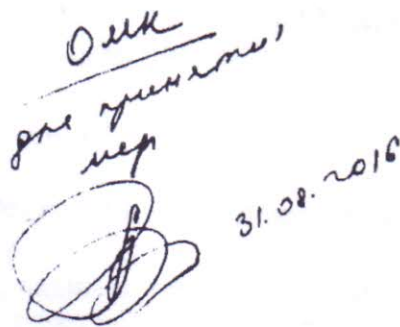 ОМК
для принятия
мер
31.08.2016